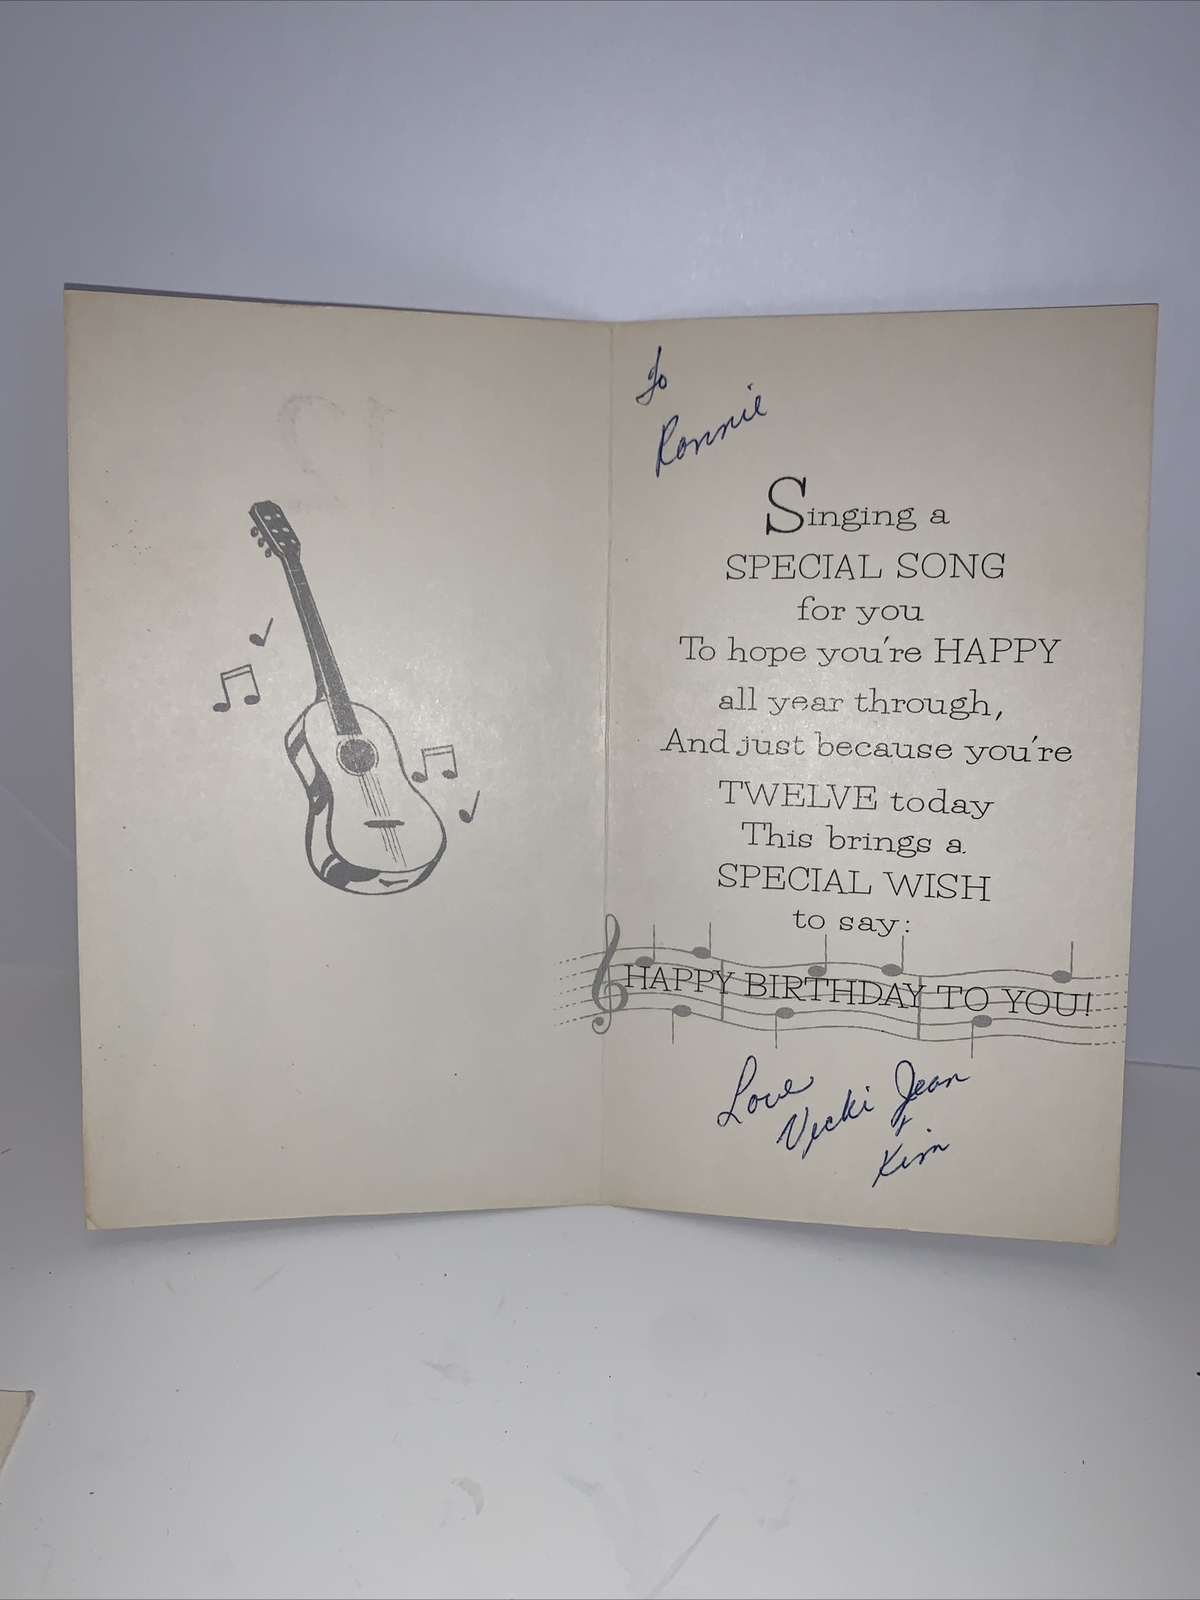 12
To
Ronnie
Singing a
SPECIAL SONG
for you
To hope you're HAPPY
all year through,
And just because you're
TWELVE today
This brings a
SPECIAL WISH
to say:
HAPPY BIRTHDAY TO YOU!
Love
Vicki Jean
+
Kim